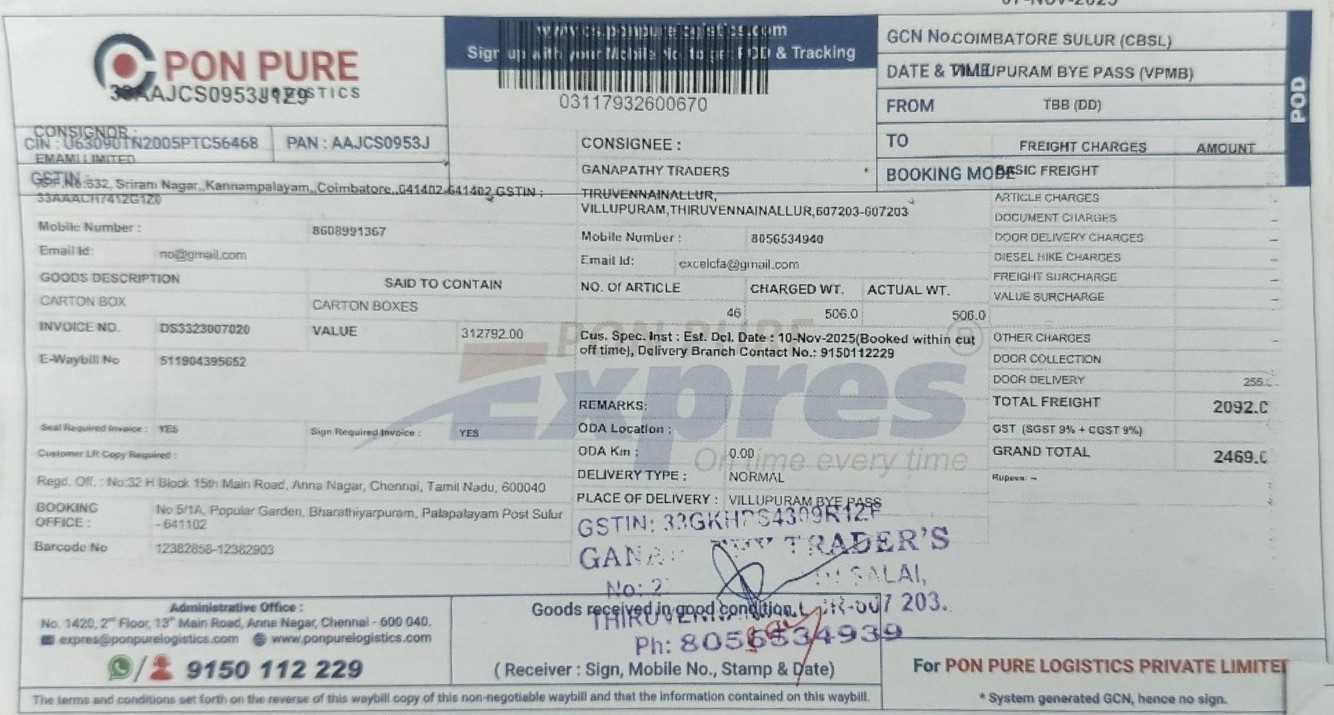 07-NOV-2025
PON PURE
LOGISTICS
33AAJCS0953J1Z9
www.cs.ponpurelogistics.com
Sign up with your Mobile No. to get POD & Tracking
03117932600670
GCN No. COIMBATORE SULUR (CBSL)
DATE & TIME VILLUPURAM BYE PASS (VPMB)
FROM TBB (DD)
TO
BOOKING MODE
POD
CONSIGNOR :
CIN : U63090TN2005PTC56468 PAN : AAJCS0953J
EMAMI LIMITED
GSTIN :
No:632, Sriram Nagar,,Kannampalayam,,Coimbatore,,641402-641402 GSTIN :
33AAACH7412G1Z0
Mobile Number : 8608991367
Email Id: no@gmail.com
GOODS DESCRIPTION SAID TO CONTAIN
CARTON BOX CARTON BOXES
INVOICE NO. DS3323007020 VALUE 312792.00
E-Waybill No 511904395652
Seal Required Invoice : YES Sign Required Invoice : YES
Customer LR Copy Required :
Regd. Off. : No:32 H Block 15th Main Road, Anna Nagar, Chennai, Tamil Nadu, 600040
BOOKING OFFICE : No 5/1A, Popular Garden, Bharathiyarpuram, Palapalayam Post Sulur
- 641102
Barcode No 12382858-12382903
CONSIGNEE :
GANAPATHY TRADERS
TIRUVENNAINALLUR,
VILLUPURAM,THIRUVENNAINALLUR,607203-607203
Mobile Number : 8056534940
Email Id: excelcfa@gmail.com
NO. Of ARTICLE CHARGED WT. ACTUAL WT.
46 506.0 506.0
Cus. Spec. Inst : Est. Del. Date : 10-Nov-2025(Booked within cut
off time), Delivery Branch Contact No.: 9150112229
PON PURE
Expres
On time every time
REMARKS:
ODA Location :
ODA Km : 0.00
DELIVERY TYPE : NORMAL
PLACE OF DELIVERY : VILLUPURAM BYE PASS
FREIGHT CHARGES AMOUNT
BASIC FREIGHT
ARTICLE CHARGES –
DOCUMENT CHARGES –
DOOR DELIVERY CHARGES –
DIESEL HIKE CHARGES –
FREIGHT SURCHARGE –
VALUE SURCHARGE –
OTHER CHARGES
DOOR COLLECTION
DOOR DELIVERY 255.
TOTAL FREIGHT 2092.0
GST (SGST 9% + CGST 9%)
GRAND TOTAL 2469.0
Rupees: ~
GSTIN: TRADER'S
SALAI,
203.
Ph: 8056534939
Administrative Office :
No. 1420, 2nd Floor, 13th Main Road, Anna Nagar, Chennai - 600 040.
expres@ponpurelogistics.com www.ponpurelogistics.com
9150 112 229
Goods received in good condition.
( Receiver : Sign, Mobile No., Stamp & Date)
For PON PURE LOGISTICS PRIVATE LIMITE
* System generated GCN, hence no sign.
The terms and conditions set forth on the reverse of this waybill copy of this non-negotiable waybill and that the information contained on this waybill.